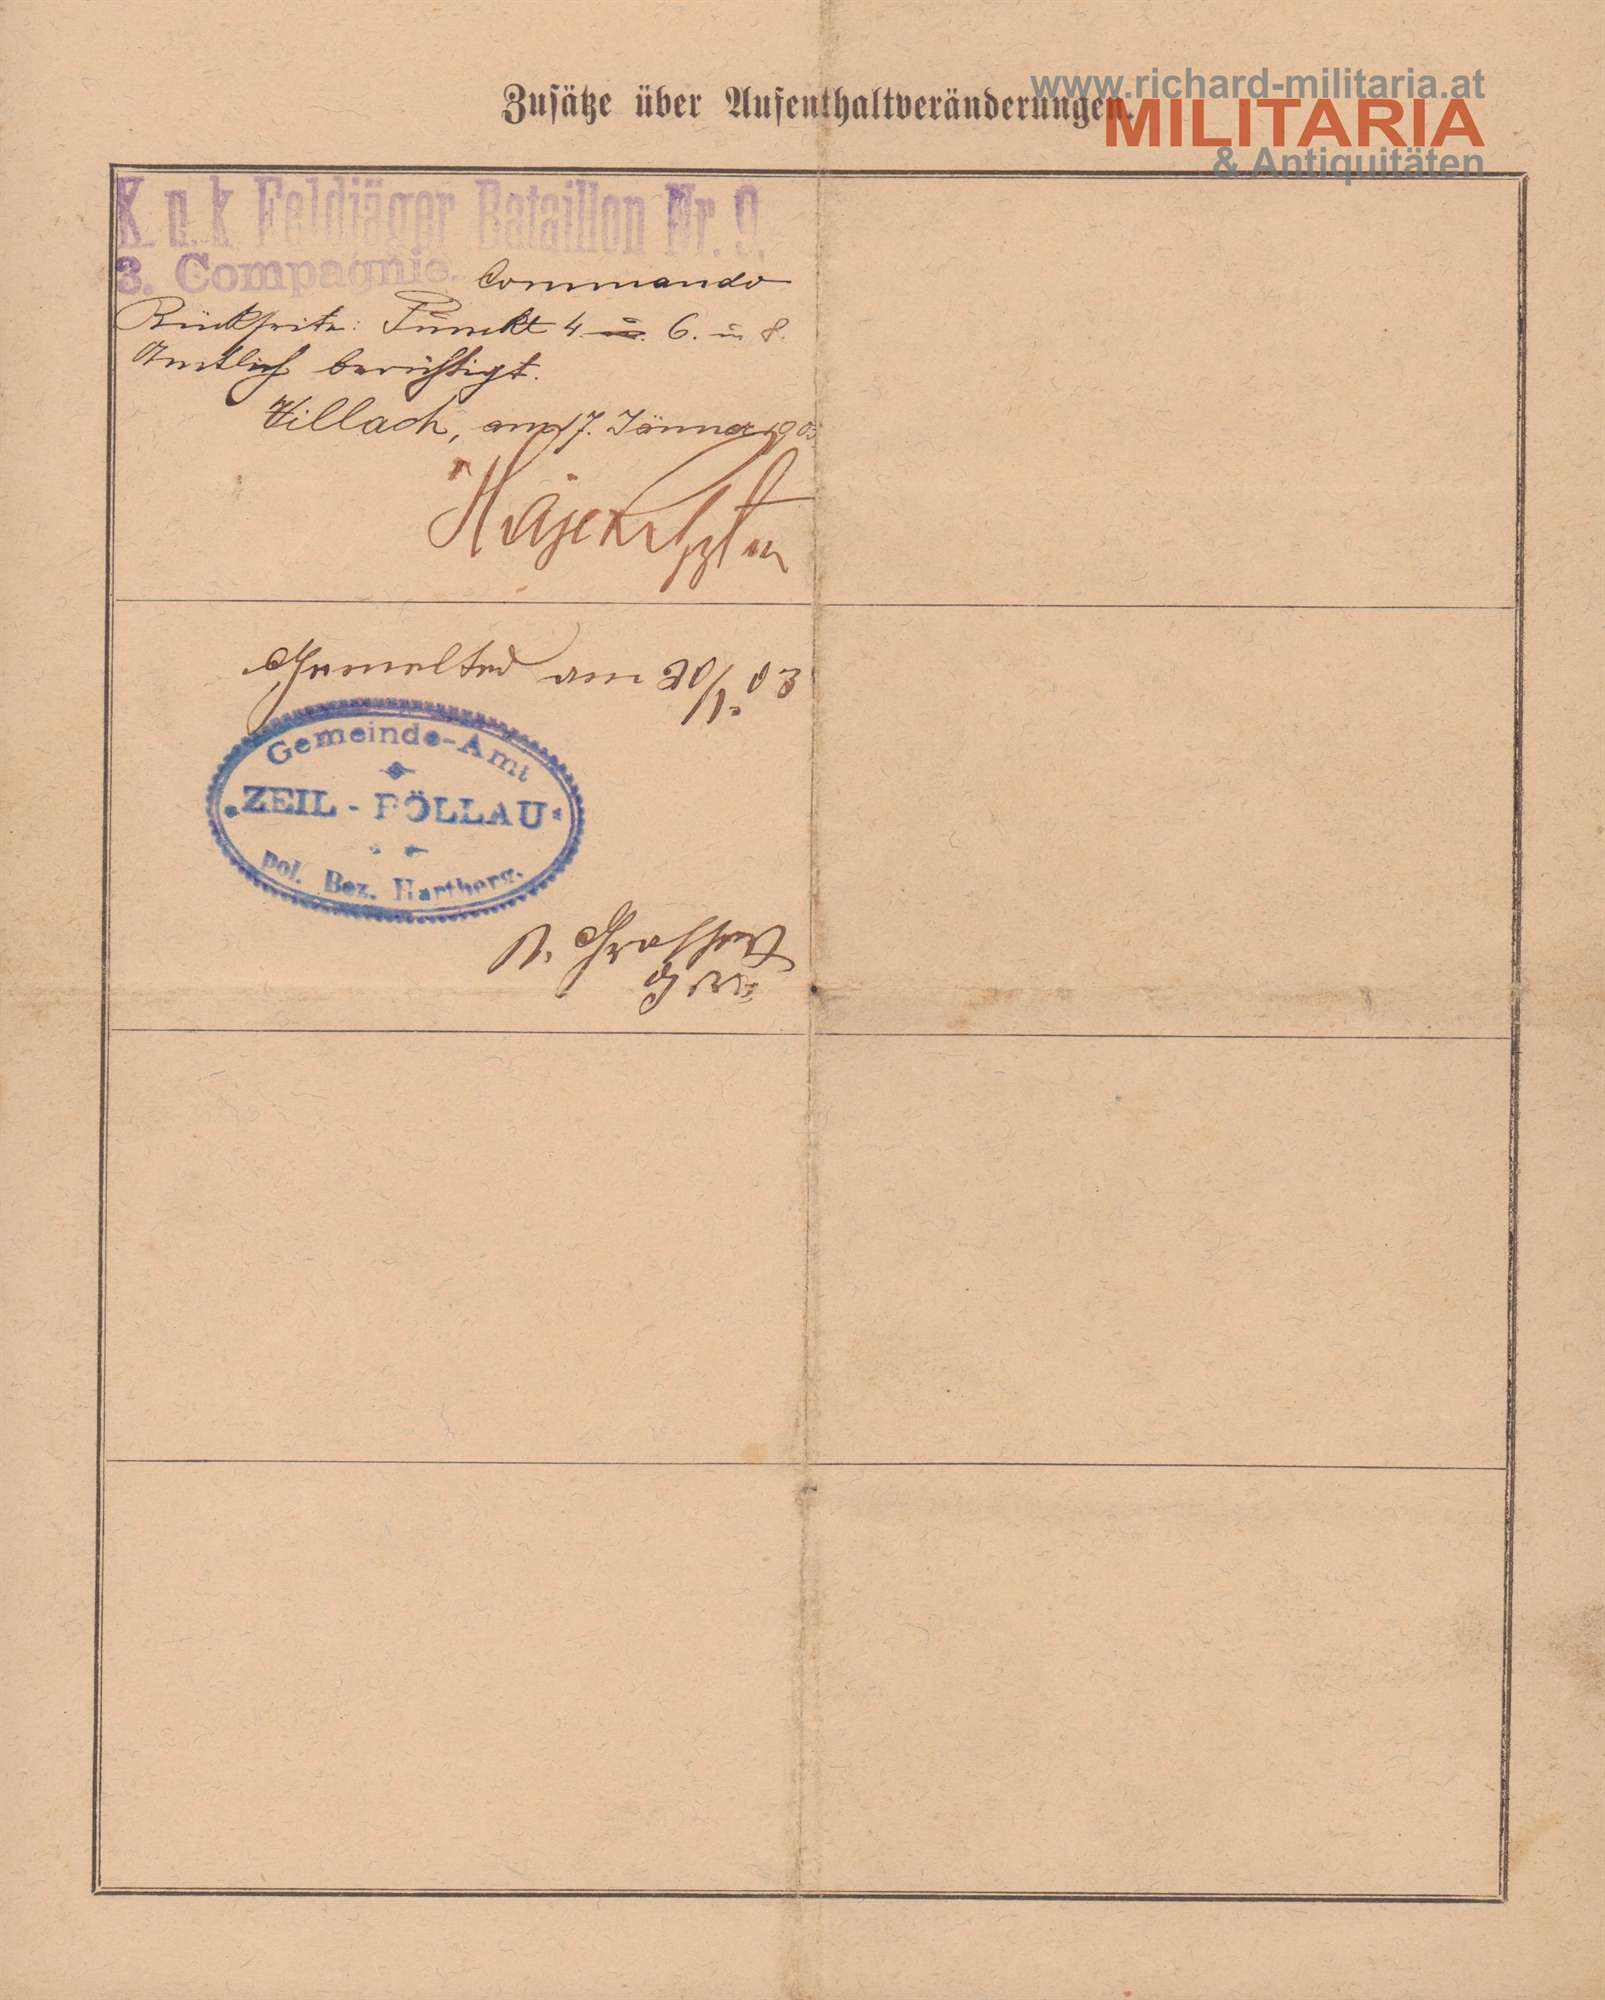 www.richard-militaria.at
MILITARIA
& Antiquitäten
Zusätze über Aufenthaltveränderungen.
K. u. k Feldjäger Bataillon Nr. 9.
3. Compagnie. Commando
Rückseite: Punkt 4. u. 6. u 8.
Amtlich berichtigt.
Villach, am 17. Jänner 903
Gemeldet am 20/1. 03
Gemeinde-Amt
ZEIL - PÖLLAU
pol. Bez. Hartberg.